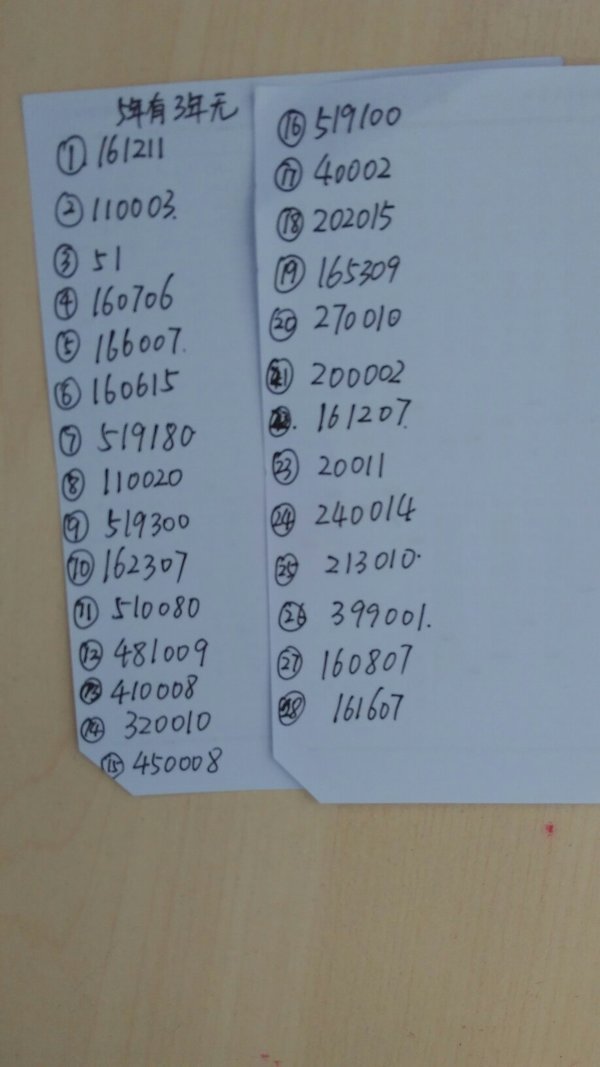 5年有3年无
① 161211
② 110003.
③ 51
④ 160706
⑤ 166007.
⑥ 160615
⑦ 519180
⑧ 110020
⑨ 519300
⑩ 162307
⑪ 510080
⑫ 481009
⑬ 410008
⑭ 320010
⑮ 450008
⑯ 519100
⑰ 40002
⑱ 202015
⑲ 165309
⑳ 270010
㉑ 200002
㉒. 161207.
㉓ 20011
㉔ 240014
㉕ 213010.
㉖ 399001.
㉗ 160807
㉘ 161607